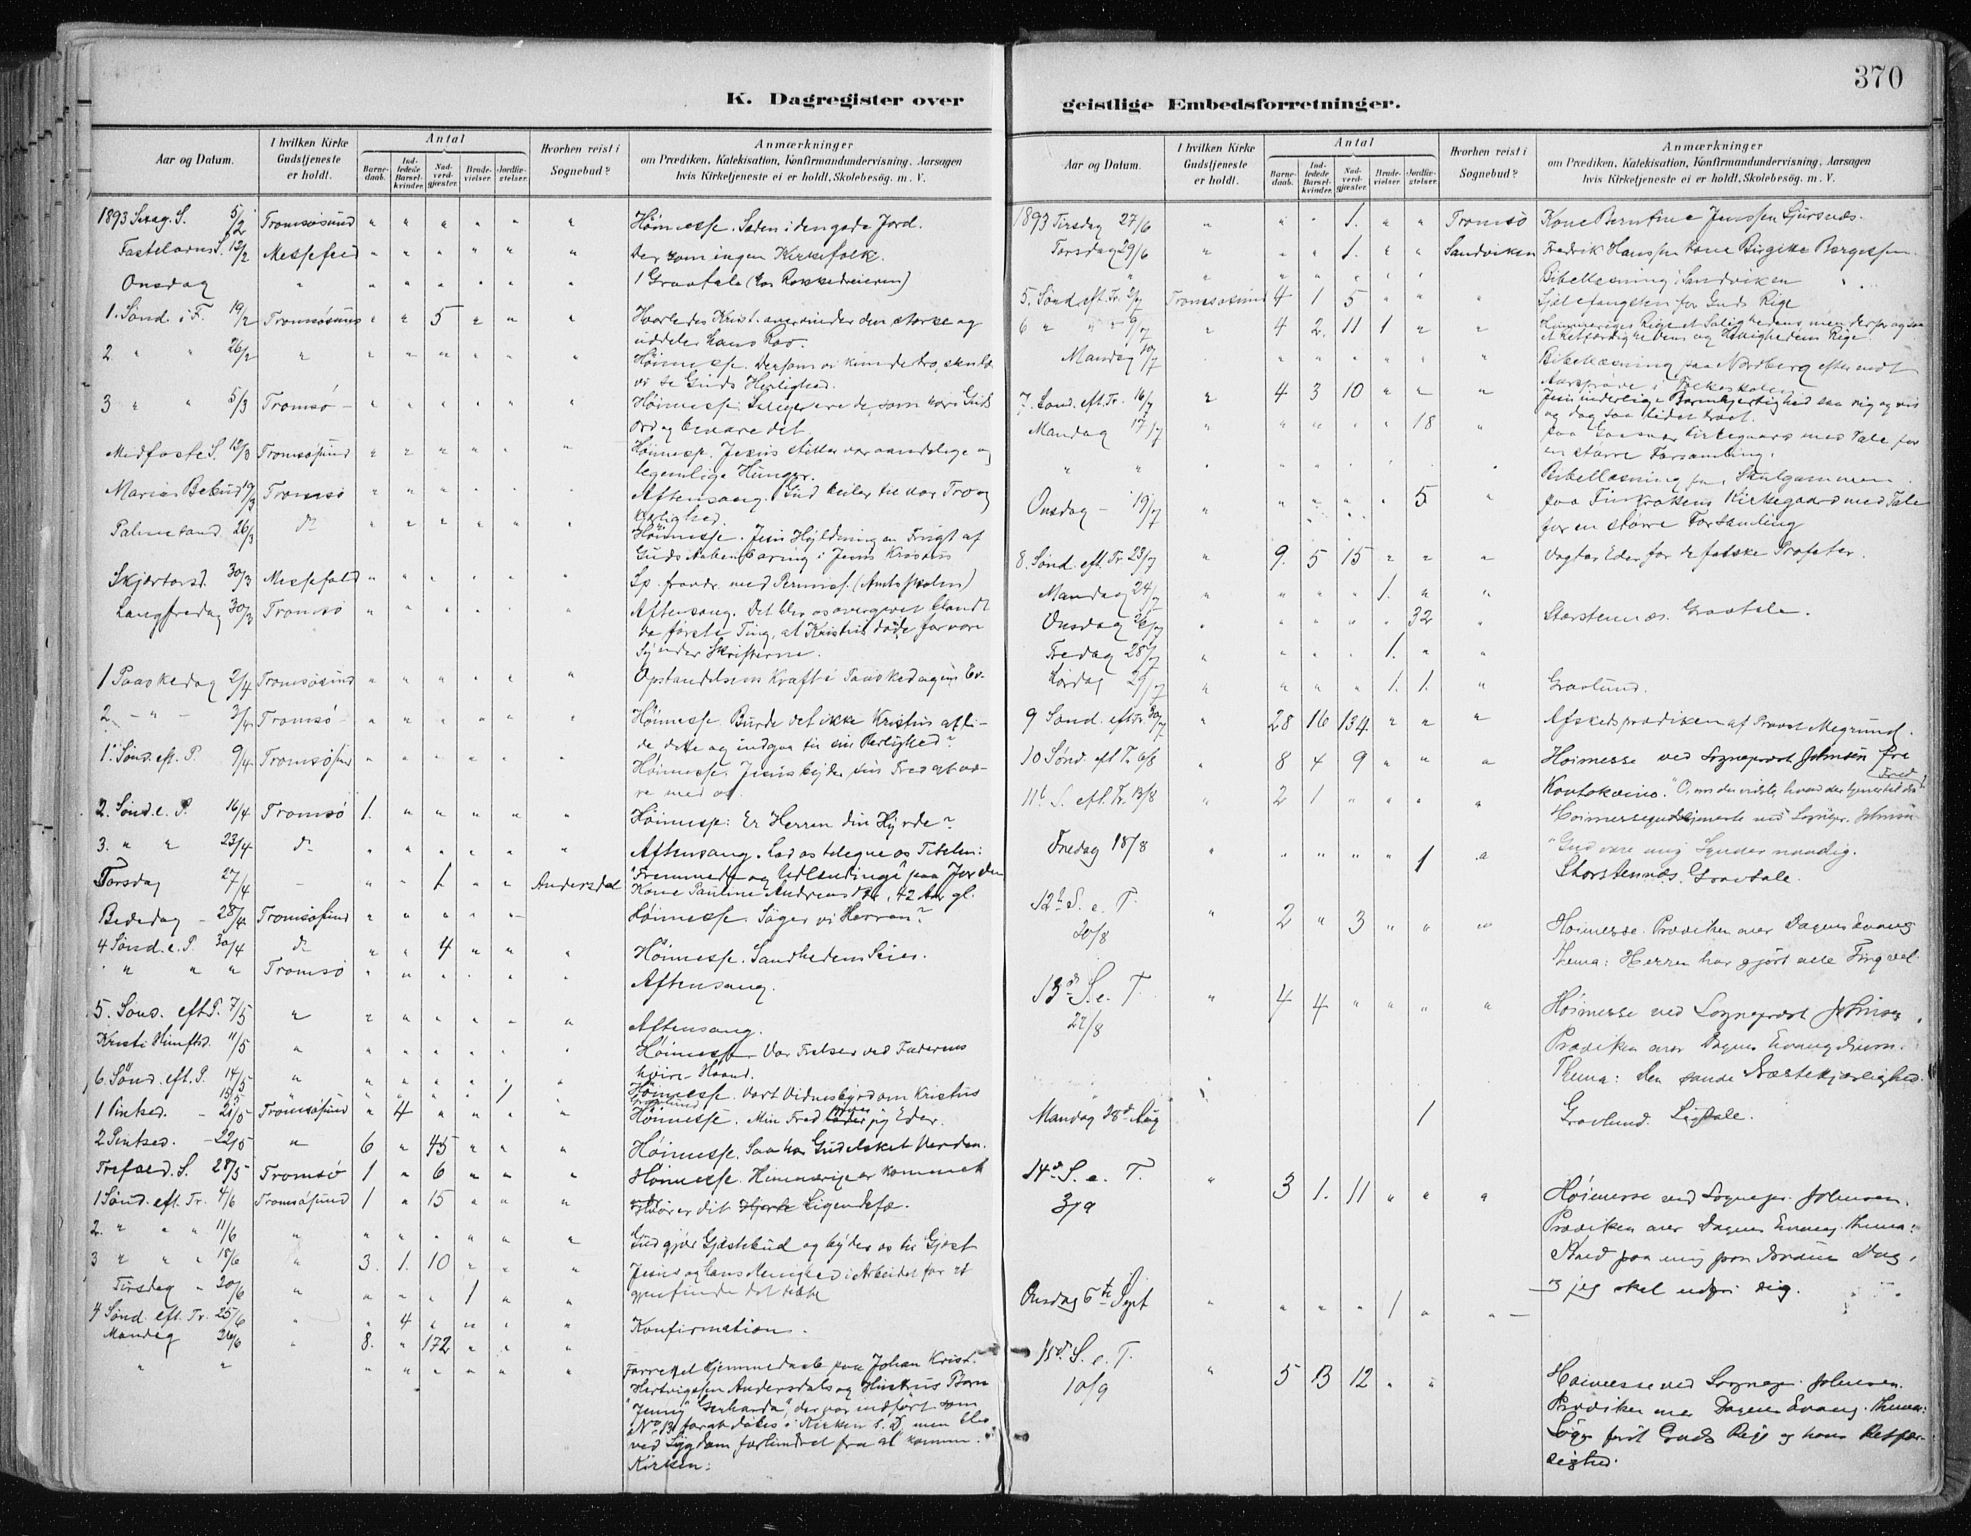 370
K. Dagregister over
geistlige Embedsforretninger.
Aar og Datum.
I hvilken Kirke Gudstjeneste er holdt.
Antal
Barnedaab.
Indledede Barselkvinder.
Nadverdgjæster.
Brudevielser.
Jordfæstelser.
Hvorhen reist i Sognebud?
Anmærkninger
om Prædiken, Katekisation, Konfirmandundervisning, Aarsagen
hvis Kirketjeneste ei er holdt, Skolebesøg. m. V.
1893 Sexag. S. 5/2 Tromsøsund " " " " " " Høimesse. Sæden i den gode Jord.
Fastelavns S. 12/2 " " " " " " Der kom ingen Kirkefolk.
Onsdag " " " " " " " 1 Gravtale
1. Sønd. i F. 19/2 Tromsøsund " " 5 " " " Hvorledes Krist. overvinder den stærke og
uddeler hans Rov.
2 " " 26/2 " " " " " " " Høimesse. Dersom vi kunde tro, skulde
vi se Guds Herlighed.
3 " " 5/3 Tromsø " " " " " " Høimesse. Salige ere de, som høre Guds
Ord og bevare det.
Midfaste S. 12/3 Tromsøsund " " " " " " Høimesse. Jesus stiller vor aandelige og
legemlige Hunger.
Marias Bebud. Tromsø " " " " " " Aftensang. Gud
Palmesønd. 26/3 do " " " " " Høimesse. Jesu Hyldning en Frugt af
Guds Aabenbaring i Jesus Kristus
Skjærtorsd. 30/3 " " " " " "
Langfredag 30/3 Tromsø " " " " " " Aftensang. Det blev os overgivet blandt
de første Ting, at Kristus døde for vore
Synder Skrifterne.
1 Paaskedag 2/4 Tromsøsund " " " " " " Opstandelsens Kraft i Paaskedagens Ev.
2 - " - 3/4 Tromsø " " " " " " Høimesse. Burde det ikke Kristus at li-
de dette og indgaa til sin Herlighed?
1. Sønd. eft. P. 9/4 Tromsøsund " " " " " Høimesse. Jesus byder sin Fred at væ-
re med os.
2. Sønd. e. P. 16/4 Tromsø 1. " " " " " Høimesse: Er Herren din Hyrde?
3. " " 23/4 do " " " " " " Aftensang.
"Fremmede og Udlændinge" paa Jorden
Torsdag 27/4 - " " 1 " " Andersdal Kone Pauline 42 Aar gl.
Bededag - 28/4 Tromsøsund " " " " Høimesse. Søger vi Herren?
4 Sønd. e. P. 30/4 do " " 4 " " " Høimesse. Sandhedens Seier.
" " " Tromsø " " " " " " Aftensang.
5. Sønd. eft. P. 7/5 " " " " " " " Aftensang.
Kristi Himmelfd. 11/5 " " " " " " " Høimesse. Vor Frelser ved Faderens
høire Haand.
6. Sønd. eft. P. 14/5 " " " " " " Høimesse. Vort Vidnesbyrd om Kristus
15/5 " " " " 1 " Gravlund
1 Pintsed. - 21/5 Tromsøsund " 4 " " " " Høimesse. Min Fred jeg Eder.
2 Pintsed. - 22/5 " 6 " 45 " " " Høimesse. Saa har Gud elsket Verden.
Trefoed. S. 28/5 Tromsø 1 " 6 " " " Høimesse. Himmerige er kommet
1 Sønd. eft. Tr. 4/6 Tromsøsund 1 " 15 " " " Hvor er dit Liggendefæ.
2. " " " 11/6 " " " " " " " Gud gjør Gjæstebud og byder os til Gjæst
3 " " " 18/6 " 3. 1. 10 " " " Jesus og hans Menighed i Arbeidet for at
gjenfinde det tabte
Tirsdag " 20/6 " " " " 1 " "
4 Sønd. eft. Tr. 25/6 " " 4 " " " " Konfirmation.
Mandag 26/6 " 8. " 172 " " "
" " " " " " " Hjemmedaab paa Johan Krist.
Hertvigsen Andersdals og Hustrus Barn
"Jenny Gerharda", der var indført som
No 13 i Kirken s. D. men blev
ved Sygdom forhindret fra at komme.
Kirken.
Aar og Datum.
I hvilken Kirke Gudstjeneste er holdt.
Antal
Barnedaab.
Indledede Barselkvinder.
Nadverdgjæster.
Brudevielser.
Jordfæstelser.
Hvorhen reist i Sognebud?
Anmærkninger
om Prædiken, Katekisation, Konfirmandundervisning, Aarsagen
hvis Kirketjeneste ei er holdt, Skolebesøg. m. V.
1893 Tirsdag 27/6 " " " 1. " " Tromsø Kone Berntine Jenssen
Torsdag 29/6 " " " 1. " " Sandviken Fredrik Hanssens Kone Birgitte
" " " " " " " Bibellæsning i Sandviken
5. Sønd. eft. Tr. 2/7 Tromsøsund 4 1 5 " " " Sjælefangsten for Guds Rige
6 " " " 9/7 " 4 2. 11 1 " " Himmeriges Rige et Salighedens men derfor ogsaa
et Retfærdighedens og Hellighedens Rige.
Mandag 10/7 " " " " " Bibellæsning paa Nordberg efter endt
Aarsprøve i Folkeskolen
7. Sønd. eft. Tr. 16/7 " 4 3 10 " " " Jesu inderlige Barmhjertighed
Mandag 17/7 " " " " " 18 " paa Kirkegaard med Tale for
en større Forsamling.
" " " " " " " " Bibellæsning
Onsdag - 19/7 " " " " " 5 " paa Finkrokens Kirkegaard med Tale
for en større Forsamling
8. Sønd. eft. Tr. 23/7 " 9. 5 15 " " " Vogter Eder for de falske Profeter.
Mandag 24/7 " " " " 1. " "
Onsdag 26/7 " " " " " 32 " Storstennæs. Gravtale.
Fredag 28/7 " " " " 1. " "
Lørdag 29/7 " " " " 1. 1. " Gravlund.
9 Sønd. eft. Tr. 30/7 " 28 16 134 " " " Afskedsprædiken af Provst
10 Sønd. eft Tr. 6/8 " 8 4 9 " " " Høimesse ved Sogneprest Johnsen fra
Kautokeino. "O, om du vidste, hvad der tjener til din Fred"
11te S. eft. Tr. 13/8 " 2 1 " " " " Høimessegudstjeneste ved Sognepr. Johnsen
"Gud vær mig Synder naadig.
Fredag 18/8 " " " " " 1 " Storstennæs. Gravtale.
12te S. e. T.
20/8 " 2 " 3 " " " Høimesse. Prædiken over Dagens Evang
Thema: Herren har gjort alle Ting vel.
13de S. e. T.
27/8 " 4 4 " " " " Høimesse ved Sogneprest Johnsen.
Prædiken over Dagens Evangelium.
Thema: Den sande Næstekjærlighed.
Mandag 28de Aug 1 Gravlund. Ligtale.
14de S. e. T.
3/9 " 3 1. 11 " " " Høimesse ved Sognepr. Johnsen.
Prædiken over Dagens Evang. Thema:
Kald paa mig paa Nødens Dag,
og jeg skal udfri dig.
Onsdag 6te Sept " " " " 1 " "
15de S. e. T.
10/9 " 5 13 12 " " Høimesse ved Sognepr. Johnsen.
Prædiken over Dagens Evang. Thema:
Søger først Guds Rige og hans Retfær-
dighed.